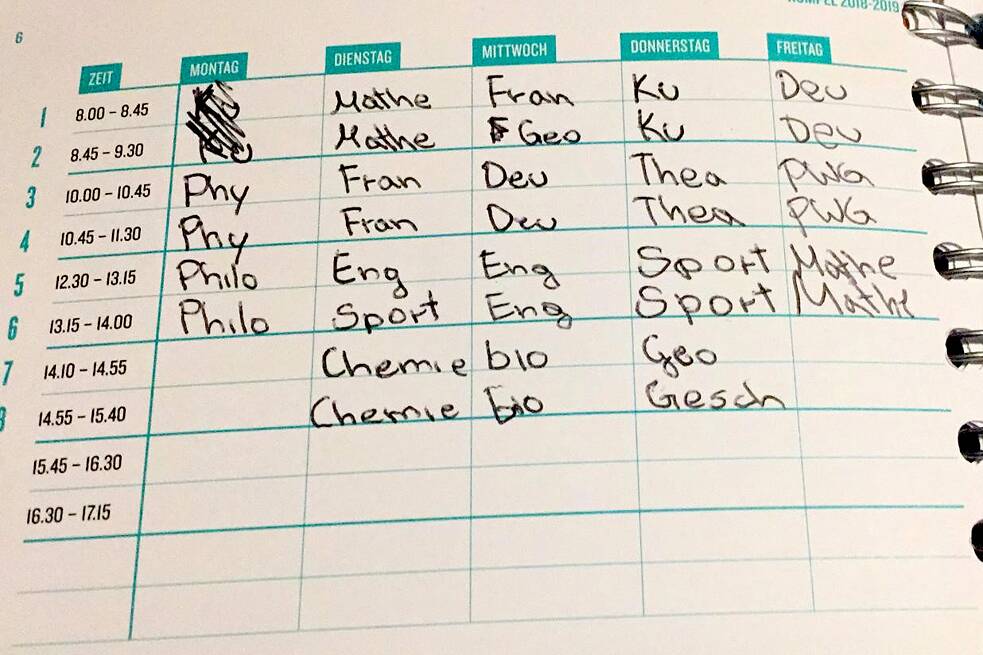 6
2018-2019
ZEIT MONTAG DIENSTAG MITTWOCH DONNERSTAG FREITAG
1 8.00 – 8.45 Mathe Fran Ku Deu
2 8.45 – 9.30 Mathe Geo Ku Deu
3 10.00 – 10.45 Phy Fran Deu Thea PWG
4 10.45 – 11.30 Phy Fran Deu Thea PWG
5 12.30 – 13.15 Philo Eng Eng Sport Mathe
6 13.15 – 14.00 Philo Sport Eng Sport Mathe
7 14.10 – 14.55 Chemie bio Geo
8 14.55 – 15.40 Chemie bio Gesch
15.45 – 16.30
16.30 – 17.15